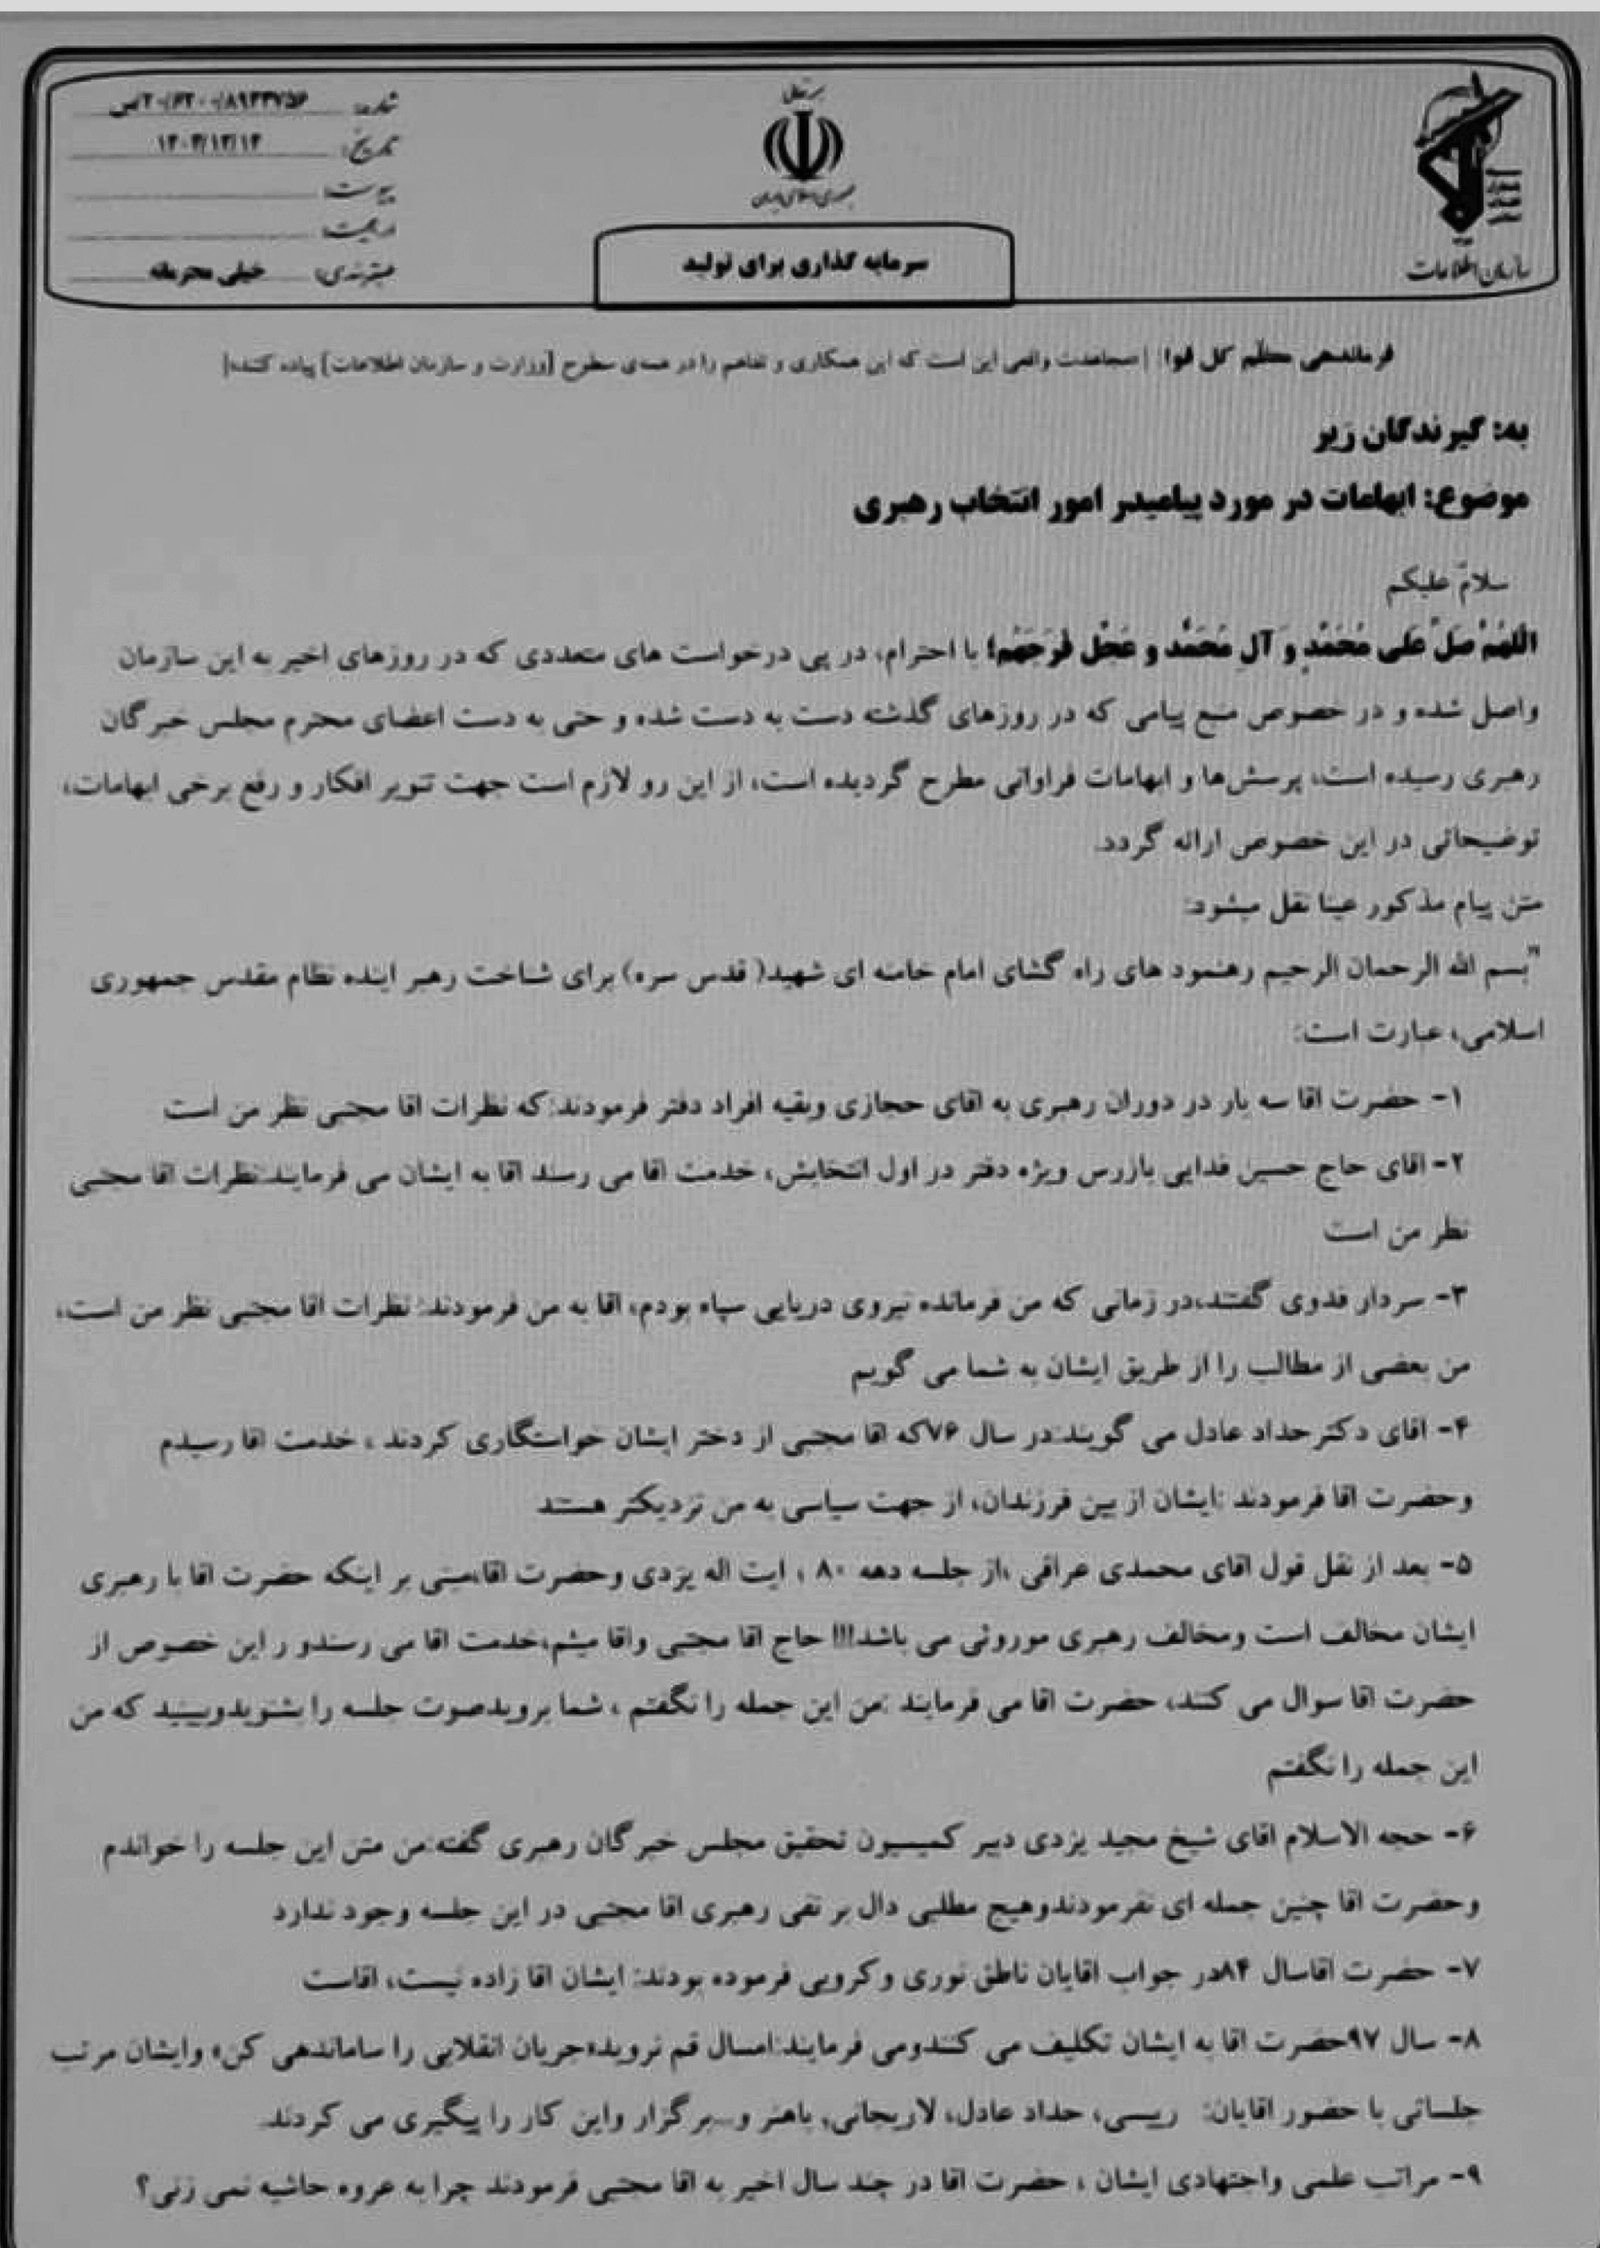 بسمه تعالی
جمهوری اسلامی ایران
سازمان اطلاعات
شماره:
تاریخ: ۱۴۰۴/۱۲/۱۴
پیوست:
مراجعت:
طبقه‌بندی: خیلی محرمانه
سرمایه گذاری برای تولید
فرماندهی معظّم کل قوا: [مجاهدت واقعی این است که این همکاری و تفاهم را در همه‌ی سطوح [وزارت و سازمان اطلاعات] پیاده کنند]
به: گیرندگان زیر
موضوع: ابهامات در مورد پیامیدر امور انتخاب رهبری
سلامٌ علیکم
اَللّهُمَّ صَلِّ عَلی مُحَمَّدٍ وَ آلِ مُحَمَّد و عَجِّل فَرَجَهُم؛ با احترام، در پی درخواست های متعددی که در روزهای اخیر به این سازمان
واصل شده و در خصوص منبع پیامی که در روزهای گذشته دست به دست شده و حتی به دست اعضای محترم مجلس خبرگان
رهبری رسیده است، پرسش‌ها و ابهامات فراوانی مطرح گردیده است، از این رو لازم است جهت تنویر افکار و رفع برخی ابهامات،
توضیحاتی در این خصوص ارائه گردد.
متن پیام مذکور عینا نقل میشود:
"بسم الله الرحمان الرحیم رهنمود های راه گشای امام خامنه ای شهید( قدس سره) برای شناخت رهبر اینده نظام مقدس جمهوری
اسلامی، عبارت است:
۱- حضرت اقا سه بار در دوران رهبری به اقای حجازی وبقیه افراد دفتر فرمودند:که نظرات اقا مجتبی نظر من است
۲- اقای حاج حسین فدایی بازرس ویژه دفتر در اول انتخابش، خدمت اقا می رسند اقا به ایشان می فرمایند:نظرات اقا مجتبی
نظر من است
۳- سردار فدوی گفتند،در زمانی که من فرمانده نیروی دریایی سپاه بودم، اقا به من فرمودند: نظرات اقا مجتبی نظر من است،
من بعضی از مطالب را از طریق ایشان به شما می گویم
۴- اقای دکترحداد عادل می گویند:در سال ۷۶که اقا مجتبی از دختر ایشان خواستگاری کردند ، خدمت اقا رسیدم
وحضرت اقا فرمودند :ایشان از بین فرزندان، از جهت سیاسی به من نزدیکتر هستند
۵- بعد از نقل قول اقای محمدی عراقی ،از جلسه دهه ۸۰ ، ایت اله یزدی وحضرت اقا،مبنی بر اینکه حضرت اقا با رهبری
ایشان مخالف است ومخالف رهبری موروثی می باشد!!! حاج اقا مجتبی واقا میثم،خدمت اقا می رسندو ر این خصوص از
حضرت اقا سوال می کنند، حضرت اقا می فرمایند :من این جمله را نگفتم ، شما برویدصوت جلسه را بشنویدوببینید که من
این جمله را نگفتم
۶- حجه الاسلام اقای شیخ مجید یزدی دبیر کمیسیون تحقیق مجلس خبرگان رهبری گفته:من متن این جلسه را خواندم
وحضرت اقا چنین جمله ای نفرمودندوهیچ مطلبی دال بر نفی رهبری اقا مجتبی در این جلسه وجود ندارد
۷- حضرت اقاسال ۸۴در جواب اقایان ناطق نوری وکروبی فرموده بودند: ایشان اقا زاده نیست، اقاست
۸- سال ۹۷حضرت اقا به ایشان تکلیف می کنندومی فرمایند:امسال قم نروید،جریان انقلابی را ساماندهی کن، وایشان مرتب
جلساتی با حضور اقایان: رییسی، حداد عادل، لاریجانی، باهنر و...برگزار واین کار را پیگیری می کردند.
۹- مراتب علمی واجتهادی ایشان ، حضرت اقا در چند سال اخیر به اقا مجتبی فرمودند چرا به عروه حاشیه نمی زنی؟